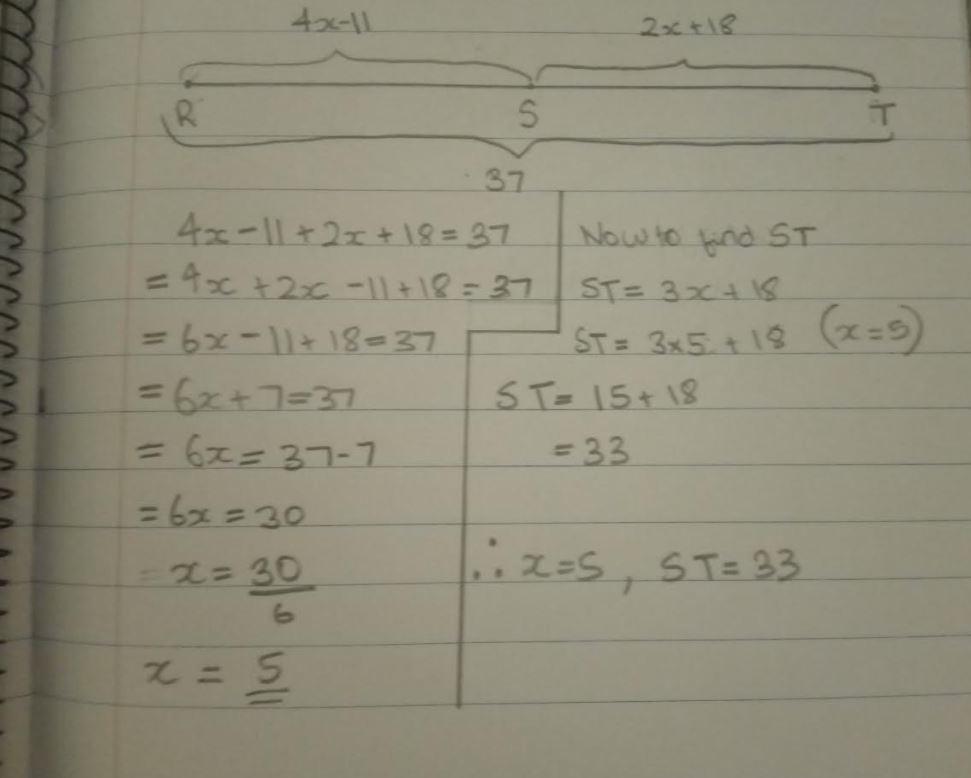 4x-11 2x+18
R S T
37
4x-11+2x+18=37
=4x+2x-11+18=37
=6x-11+18=37
=6x+7=37
=6x=37-7
=6x=30
x=30/6
x=5
Now to find ST
ST=3x+18
ST=3×5+18 (x=5)
ST=15+18
=33
∴ x=5, ST=33